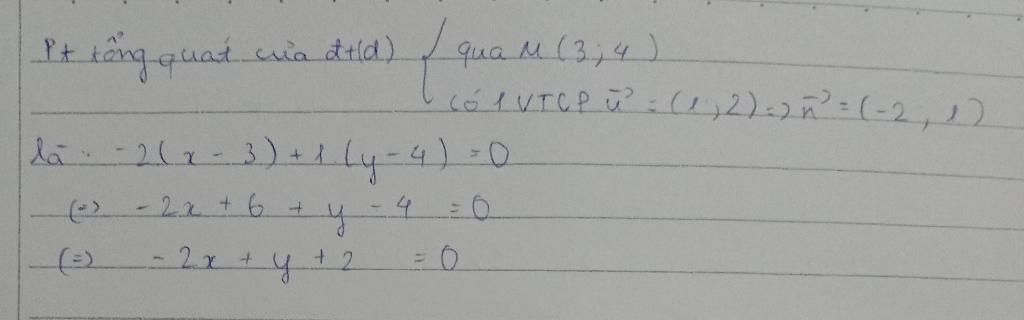 Pt tổng quát của đt(d) { qua M (3; 4)
có 1 VTCP u⃗ = (1; 2) => n⃗ = (-2, 1)
là: -2(x - 3) + 1 (y - 4) = 0
(=) -2x + 6 + y - 4 = 0
(=) -2x + y + 2 = 0